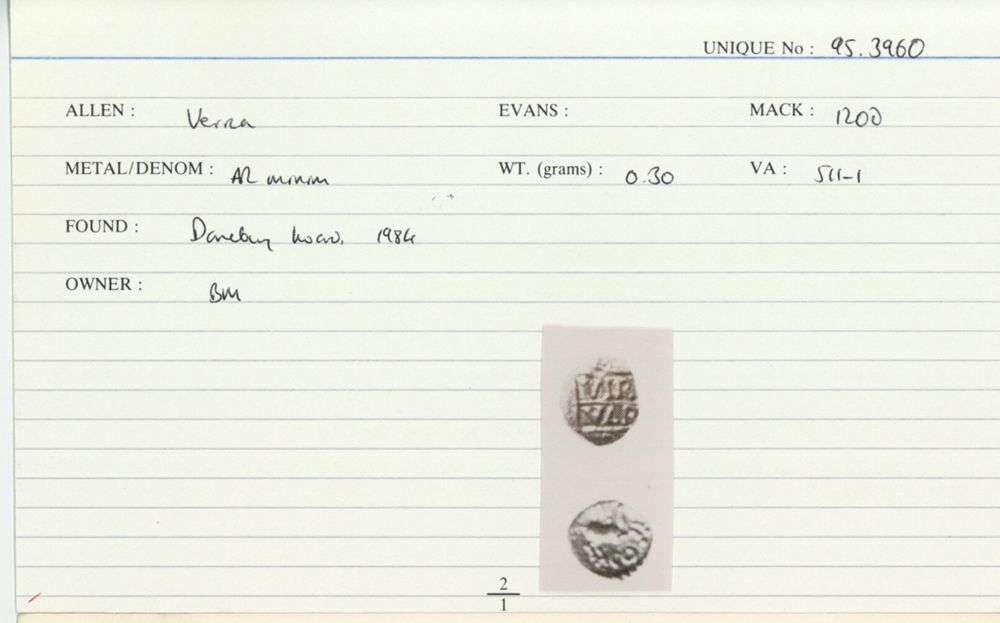 UNIQUE No : 95.3960
ALLEN : Verica EVANS : MACK : 120D
METAL/DENOM : AR minim WT. (grams) : 0.30 VA : 511-1
FOUND : Danebury hoard, 1984
OWNER : BM
VIR
VAR
2
1